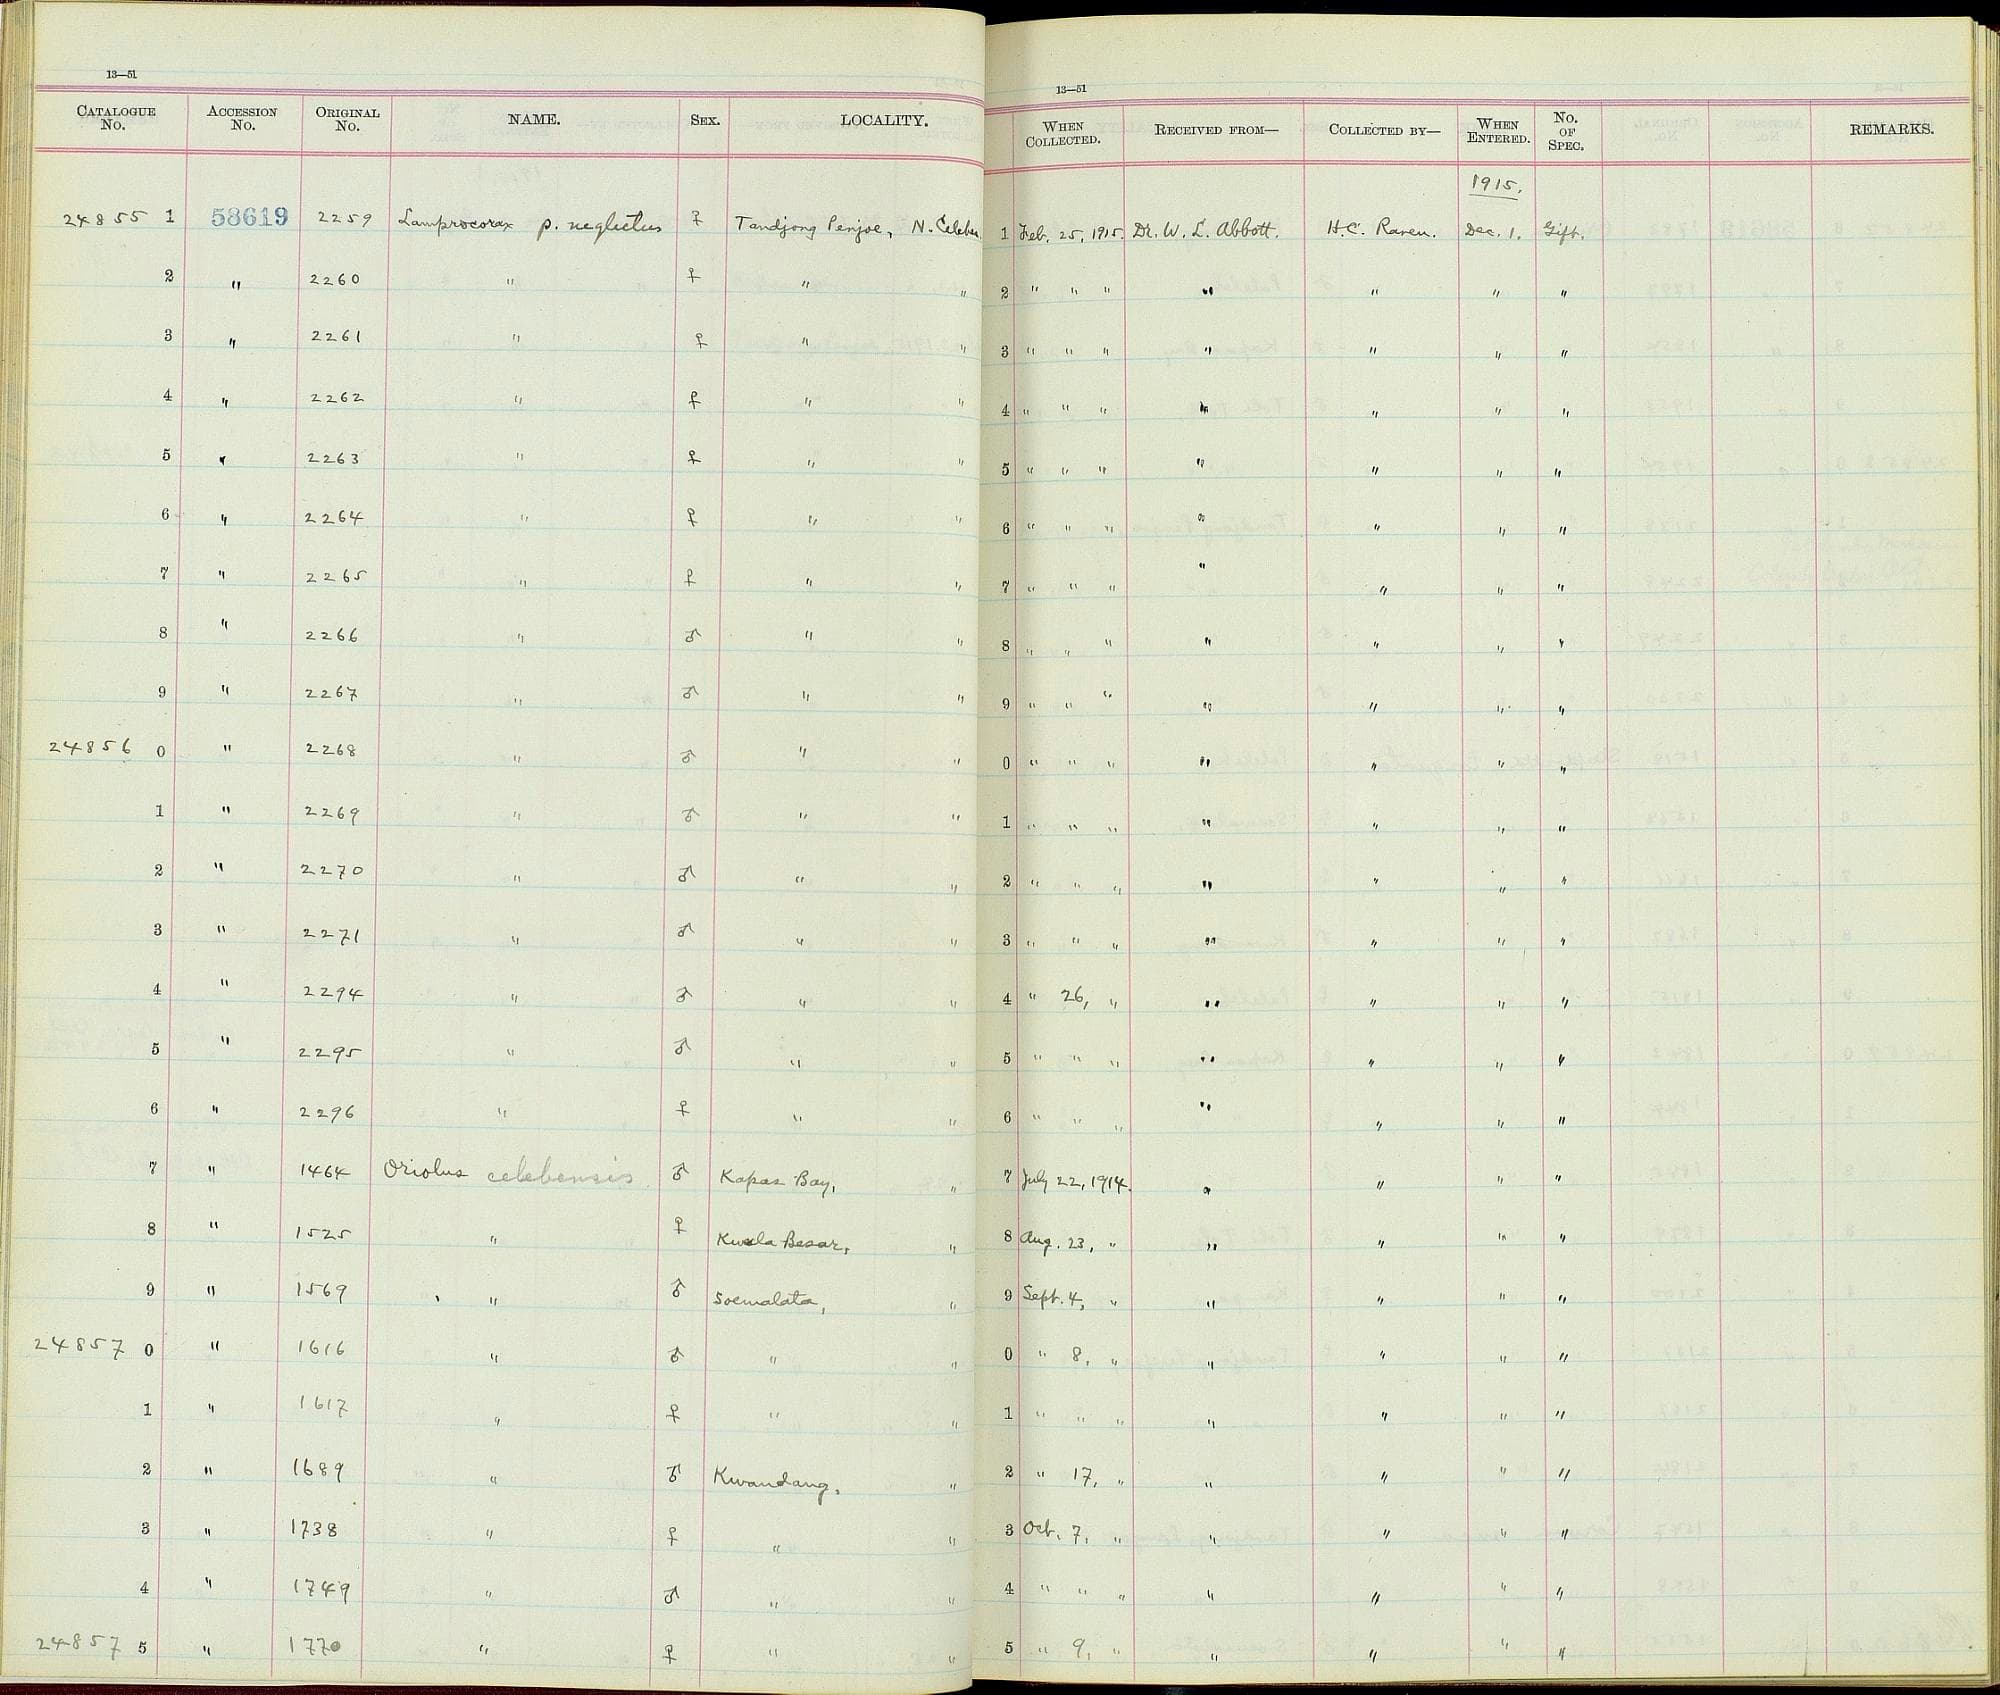 13—51
CATALOGUE No. ACCESSION No. ORIGINAL No. NAME. SEX. LOCALITY.
13—51
WHEN COLLECTED. RECEIVED FROM— COLLECTED BY— WHEN ENTERED. No. OF SPEC. REMARKS.
1915.
24855 1 58619 2259 Lamprocorax p. neglectus ♀ Tandjong Penjoe, N. Celebes. 1 Feb. 25, 1915. Dr. W. L. Abbott. H.C. Raven. Dec. 1. Gift.
2 " 2260 " ♀ " " 2 " " " " " " "
3 " 2261 " ♀ " " 3 " " " " " " "
4 " 2262 " ♀ " " 4 " " " " " " "
5 " 2263 " ♀ " " 5 " " " " " " "
6 " 2264 " ♀ " " 6 " " " " " " "
7 " 2265 " ♀ " " 7 " " " " " " "
8 " 2266 " ♂ " " 8 " " " " " " "
9 " 2267 " ♂ " " 9 " " " " " " "
24856 0 " 2268 " ♂ " " 0 " " " " " " "
1 " 2269 " ♂ " " 1 " " " " " " "
2 " 2270 " ♂ " " 2 " " " " " " "
3 " 2271 " ♂ " " 3 " " " " " " "
4 " 2294 " ♂ " " 4 " 26, " " " " "
5 " 2295 " ♂ " " 5 " " " " " " "
6 " 2296 " ♀ " " 6 " " " " " " "
7 " 1464 Oriolus celebensis ♂ Kapas Bay, " 7 July 22, 1914. " " " "
8 " 1525 " ♀ Kwala Besar, " 8 Aug. 23, " " " " "
9 " 1569 " ♂ Soemalata, " 9 Sept. 4, " " " " "
24857 0 " 1616 " ♂ " " 0 " 8, " " " " "
1 " 1617 " ♀ " " 1 " " " " " " "
2 " 1689 " ♂ Kwandang, " 2 " 17, " " " " "
3 " 1738 " ♀ " " 3 Oct. 7, " " " " "
4 " 1749 " ♂ " " 4 " " " " " " "
24857 5 " 1770 " ♀ " " 5 " 9, " " " " "